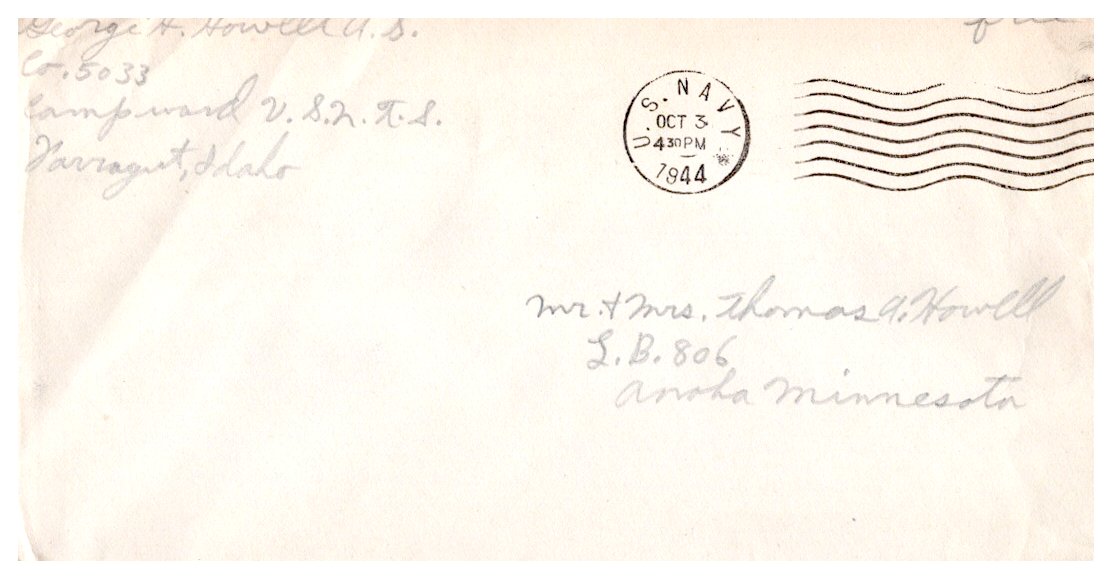 George H. Howell A.S.
Co. 5033
Camp ward U.S.N.T.S.
Farragut, Idaho
free
U.S. NAVY
OCT 3
430PM
1944
Mr. & Mrs. Thomas A. Howell
L.B. 806
Anoka Minnesota